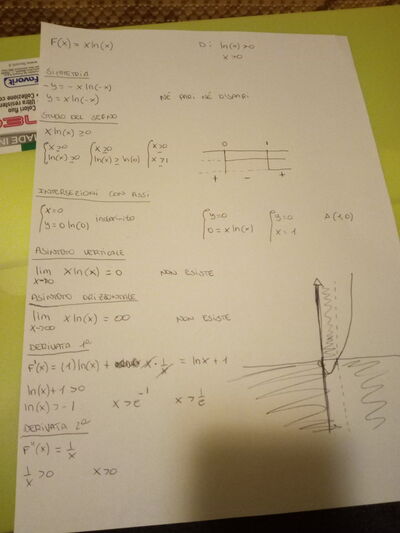 F(x) = x ln(x)
D: ln(x) > 0
x > 0
SIMMETRIA
-y = - x ln(-x)
y = x ln(-x)
NÉ PARI NÉ DISPARI
STUDIO DEL SEGNO
x ln(x) ≥ 0
{ x ≥ 0
ln(x) ≥ 0
{ x ≥ 0
ln(x) ≥ ln(1)
{ x > 0
x ≥ 1
0 1
+ - +
INTERSEZIONI CON ASSI
{ x = 0
y = 0 ln(0) indefinito
{ y = 0
0 = x ln(x)
{ y = 0
x = 1
A (1,0)
ASINTOTO VERTICALE
lim x ln(x) = 0
x→0
NON ESISTE
ASINTOTO ORIZZONTALE
lim x ln(x) = ∞
x→∞
NON ESISTE
DERIVATA 1ª
F'(x) = (1) ln(x) + x · 1/x = ln x + 1
ln(x) + 1 > 0
ln(x) > -1
x > e⁻¹
x > 1/e
DERIVATA 2ª
F''(x) = 1/x
1/x > 0
x > 0
Favorit
Color fluo
MADE IN